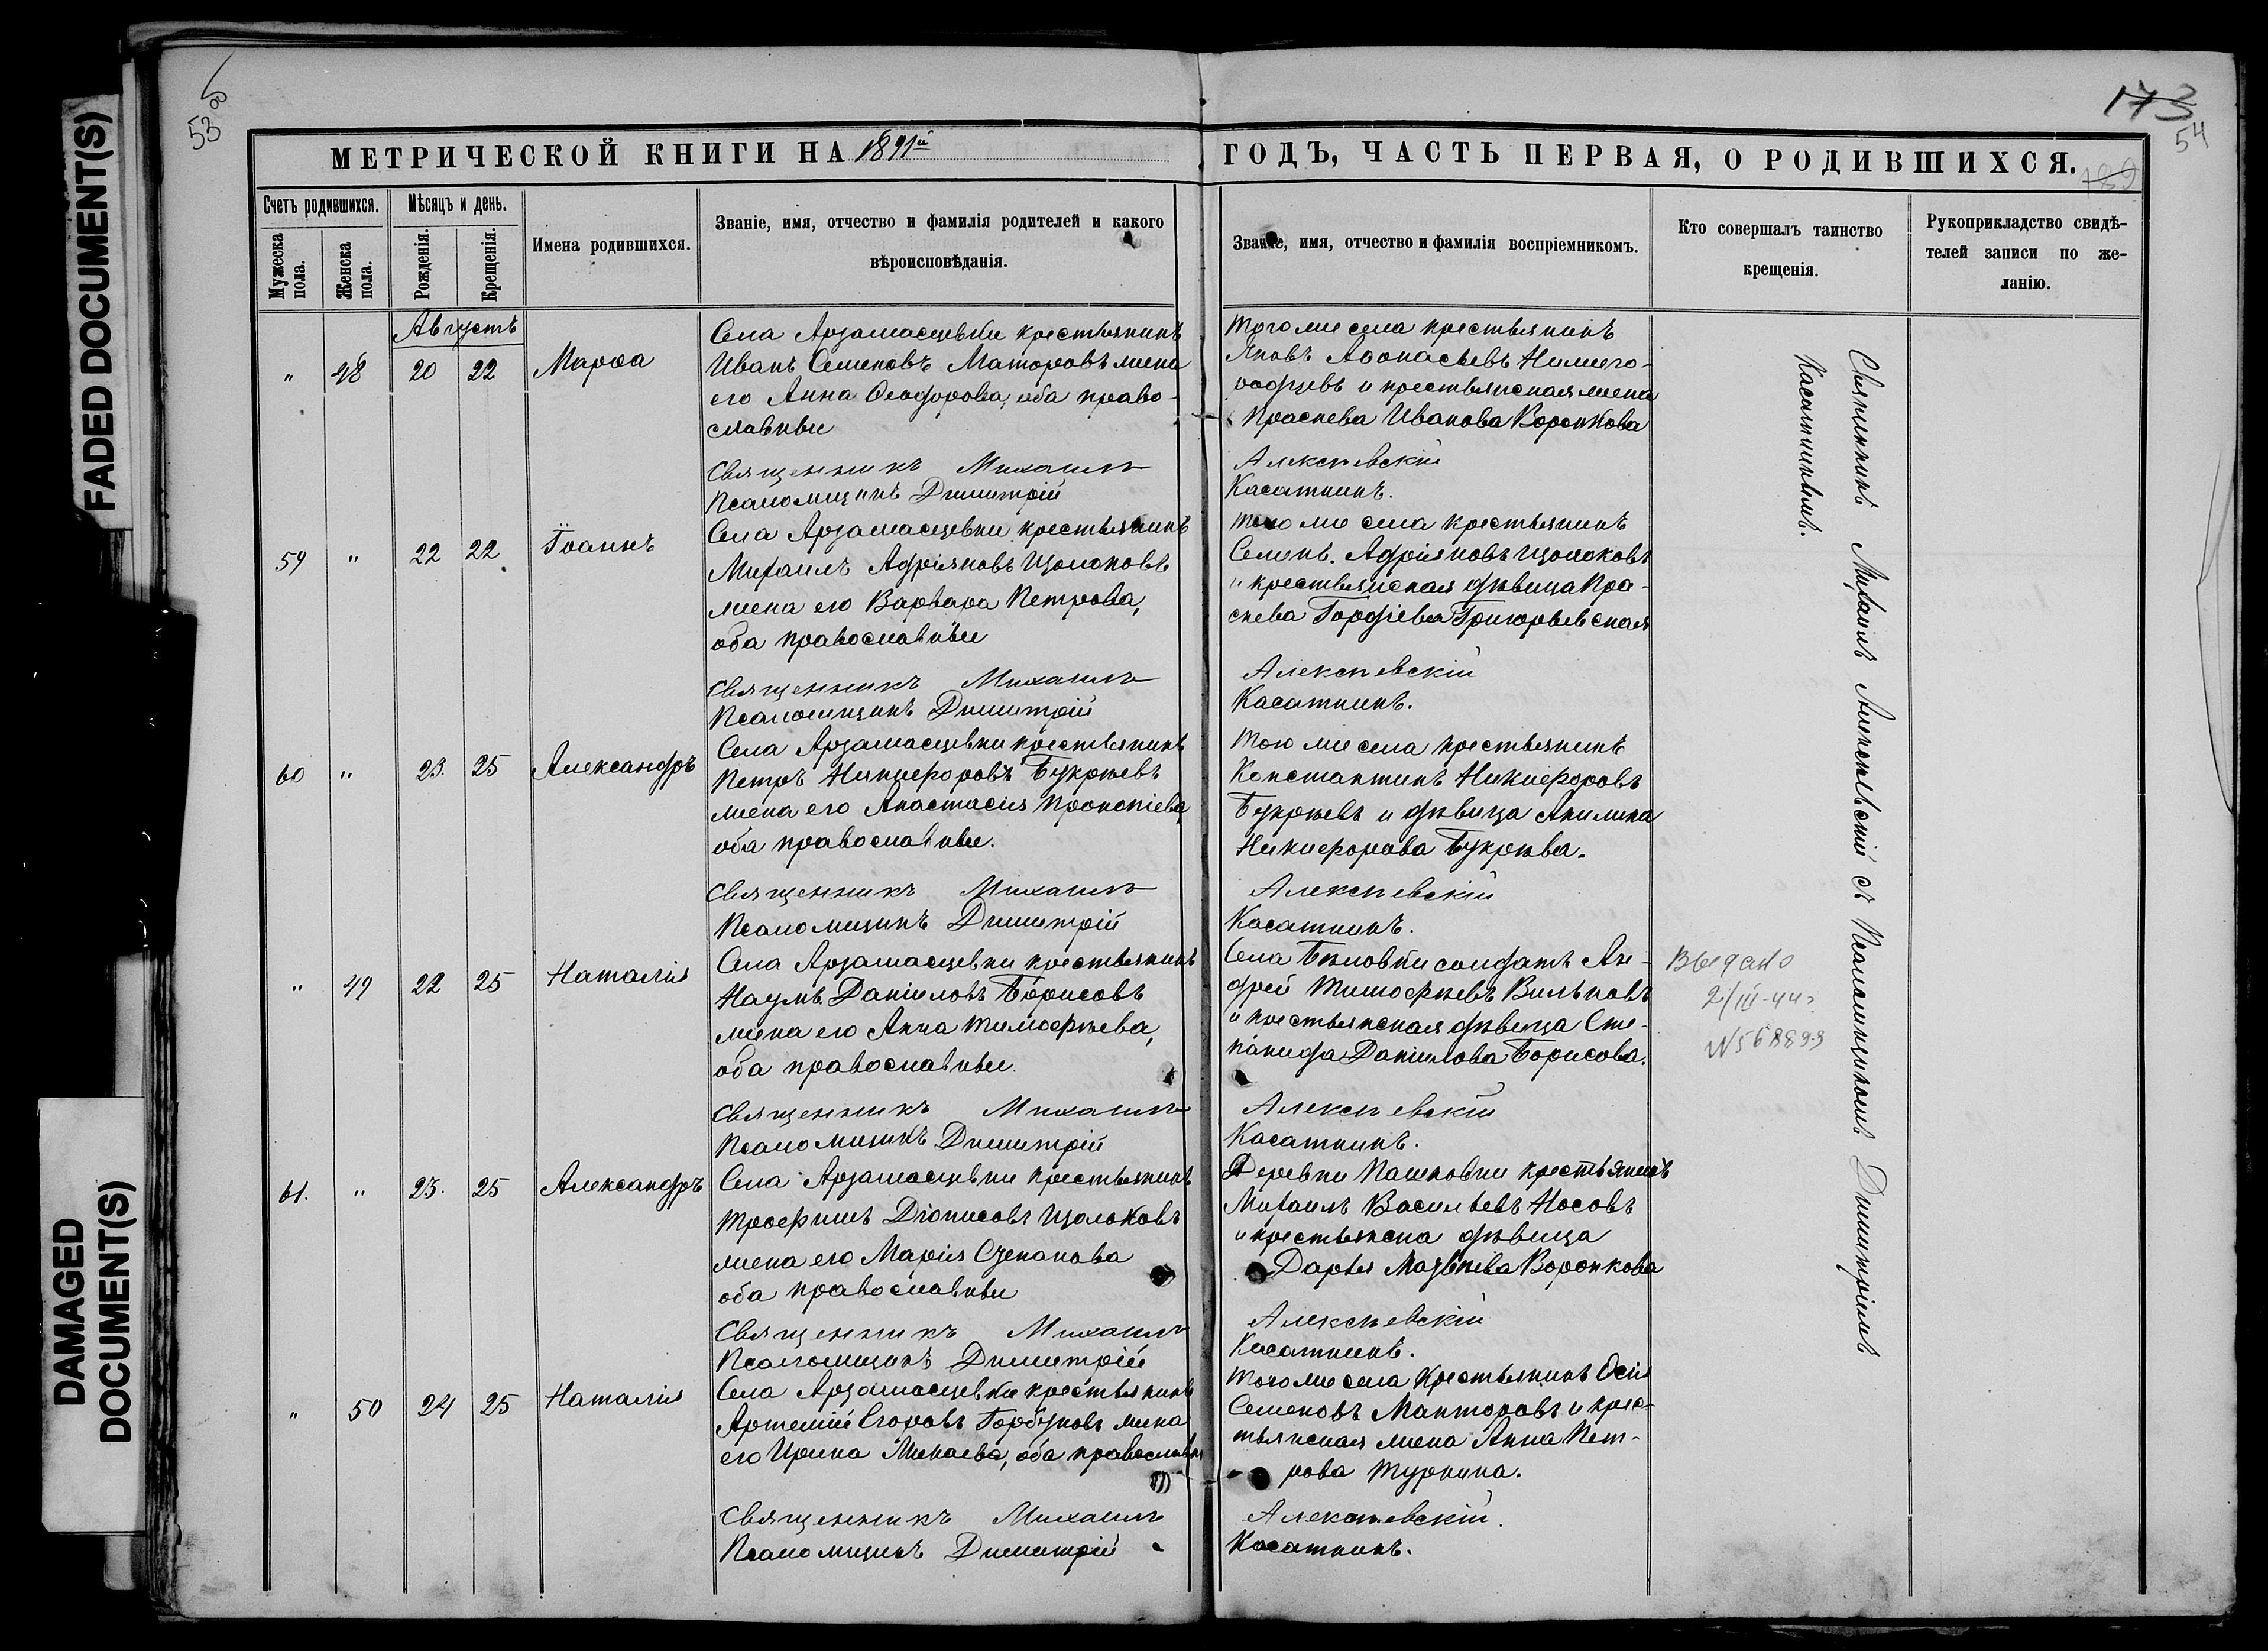 FADED DOCUMENT(S)
DAMAGED
DOCUMENT(S)
53 об
173
54
189
МЕТРИЧЕСКОЙ КНИГИ НА 1891й
ГОДЪ, ЧАСТЬ ПЕРВАЯ, О РОДИВШИХСЯ.
Счетъ родившихся.
Мужеска пола.
Женска пола.
Мѣсяцъ и день.
Рожденія.
Крещенія.
Имена родившихся.
Званіе, имя, отчество и фамилія родителей и какого
вѣроисповѣданія.
Званіе, имя, отчество и фамилія воспріемникомъ.
Кто совершалъ таинство
крещенія.
Рукоприкладство свидѣ-
телей записи по же-
ланію.
Августъ
" 48 20 22 Марѳа
Села Арзамасцевки крестьянинъ
Иванъ Семеновъ Маторовъ жена
его Анна Ѳеодорова, оба право-
славные
Тогоже села крестьянинъ
Яковъ Аѳонасьевъ Нижего-
родцевъ и крестьянская жена
Праскева Иванова Воронкова
Священникъ Михаилъ Алексѣевскій
Псаломщикъ Димитрій Касаткинъ.
59 " 22 22 Іоаннъ
Села Арзамасцевки крестьянинъ
Михаилъ Адріяновъ Щолоковъ
жена его Варвара Петрова,
оба православные
того же села крестьянинъ
Семенъ Адріяновъ Щолоковъ
и крестьянская дѣвица Пра-
скева Гордіева Григорьевская
Священникъ Михаилъ Алексѣевскій
Псаломщикъ Димитрій Касаткинъ.
60 " 23. 25 Александръ
Села Арзамасцевки крестьянинъ
Петръ Никифоровъ Букрѣевъ
жена его Анастасія Прокопіева,
оба православные.
Того же села крестьянинъ
Константинъ Никифоровъ
Букрѣевъ и дѣвица Акилина
Никифорова Букрѣева.
Священникъ Михаилъ Алексѣевскій
Псаломщикъ Димитрій Касаткинъ.
" 49 22 25 Наталія
Села Арзамасцевки крестьянинъ
Наумъ Даніиловъ Борисовъ
жена его Анна Тимофѣева,
оба православные.
Села Бѣловки солдатъ Ан-
дрей Тимофѣевъ Вильковъ
и крестьянская дѣвица Сте-
панида Даніилова Борисова.
Священникъ Михаилъ Алексѣевскій
Псаломщикъ Димитрій Касаткинъ.
61. " 23. 25 Александръ
Села Арзамасцевки крестьянинъ
Трофимъ Діонисовъ Щолоковъ
жена его Марія Степанова
оба православные
Деревни Пашковки крестьянинъ
Михаилъ Васильевъ Носовъ
и крестьянска дѣвица
Дарья Воронкова
Священникъ Михаилъ Алексѣевскій
Псаломщикъ Димитрій Касаткинъ.
" 50 24 25 Наталія
Села Арзамасцевки крестьянинъ
Артемій Егоровъ Горбуновъ жена
его Ирина Минаева, оба православн
Тогоже села Крестьянинъ Осія
Семеновъ Манторовъ и крес-
тьянская жена Анна Пет-
рова Туркина.
Священникъ Михаилъ Алексѣевскій.
Псаломщикъ Димитрій Касаткинъ.
Священникъ Михаилъ Алексѣевскій съ Псаломщикомъ Димитріемъ
Касаткинымъ.
Выдано
2/III-44г
№568899